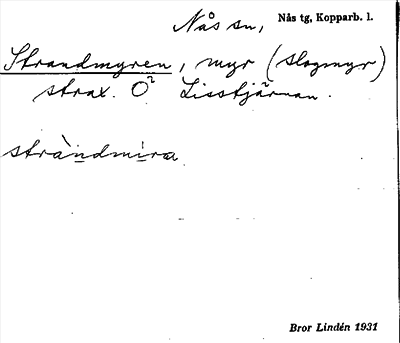 Nås sn,
Nås tg, Kopparb. l.
Strandmyren, myr (slogmyr)
strax. O² Lisstjärnan.
stràndmira
Bror Lindén 1931